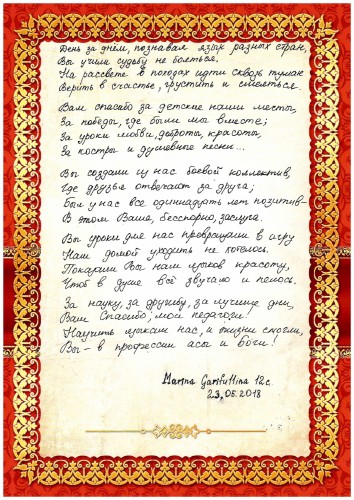 День за днём, познавая язык разных стран,
Вы учили судьбу не бояться.
На рассвете в походах идти сквозь туман
Верить в счастье, грустить и смеяться.
Вам спасибо за детские наши мечты,
За победы, где были мы вместе;
За уроки любви, доброты, красоты,
За костры и душевные песни...
Вы создали из нас боевой коллектив,
Где друзья отвечают за друга;
Был у нас все одиннадцать лет позитив –
В этом Ваша, бесспорно, заслуга.
Вы уроки для нас превращали в игру
Нам домой уходить не хотелось.
Показали Вы нам языков красоту,
Чтоб в душе всё звучало и пелось.
За науку, за дружбу, за лучшие дни,
Вам Спасибо, мои педагоги!
Научить языкам нас, и жизни смогли,
Вы – в профессии асы и боги!
Marina Garifullina 12c.
23.05.2018